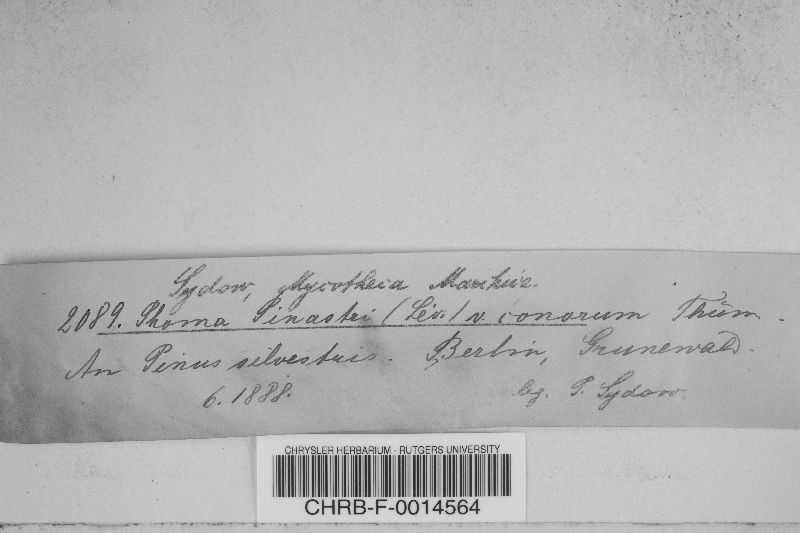 Sydow, Mycotheca Marchica.
2089. Phoma Pinastri (Lév.) v. conorum Thüm.
An Pinus silvestris. Berlin, Grunewald.
6. 1888. leg. P. Sydow.
CHRYSLER HERBARIUM - RUTGERS UNIVERSITY
CHRB-F-0014564